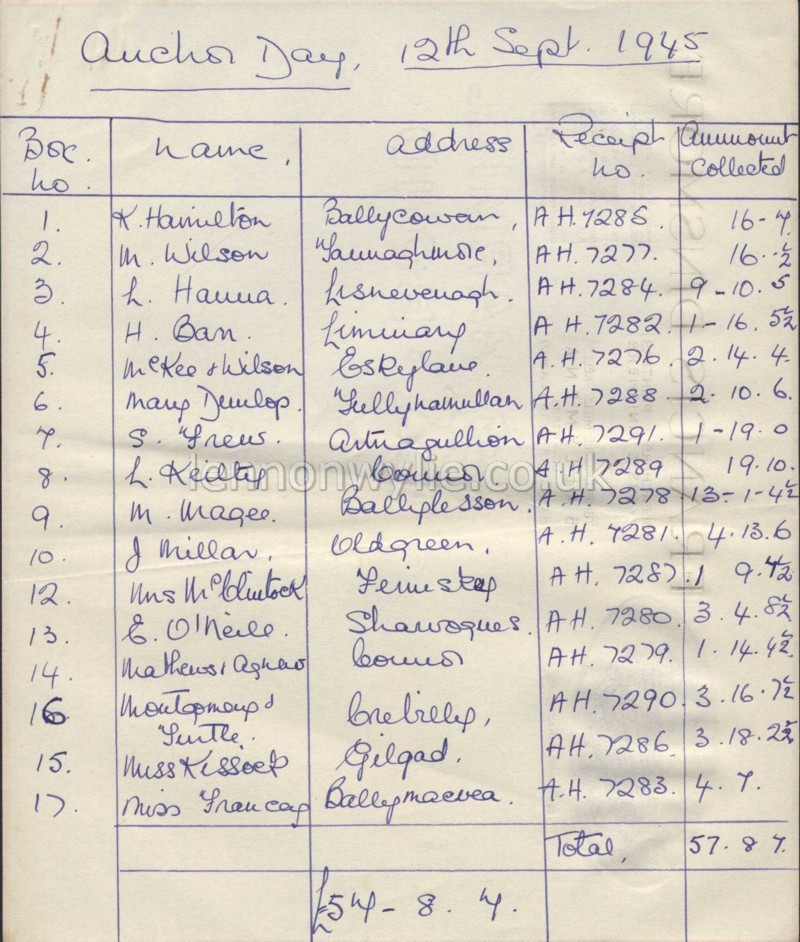 Anchor Day, 12th Sept. 1945
Box. no. name. address Receipt no. Ammount Collected
1. K. Hamilton Ballycowan, A H. 7285. 16-7.
2. M. Wilson Tannaghmore, AH. 7277. 16.-½
3. L. Hanna. Lisnevenagh. AH. 7284. 9-10.5
4. H. Barr. Liminary A H. 7282. 1-16. 5½
5. McKee & Wilson Eskylane. A.H. 7276. 2.14.4.
6. Mary Dunlop. Tullynamullan A.H. 7288. 2.10.6.
7. S. Frew. Artnagullion AH. 7291. 1-19.0
8. L. Kealty Connor. AH 7289 19.10.
9. M. Magee. Ballylesson. A.H. 7278 13-1-4½
10. J Millar. Oldgreen. A.H. 7281. 4.13.6
12. Mrs McClintock Ferniskey AH. 7287. 1 9.4½
13. E. O'Neile. Shanoques. AH. 7280. 3.4.8½
14. Mathews & Agnew Connor AH. 7279. 1.14.4½
16. Montgomery & Crebilly, AH. 7290. 3.16.7½
Turtle.
15. Miss Kissock Gilgad. AH. 7286. 3.18.2½
17. Miss Francey Ballymacvea. A.H. 7283. 4.7.
Total. 57.8 7.
£57-8.7.
lennonwylie.co.uk